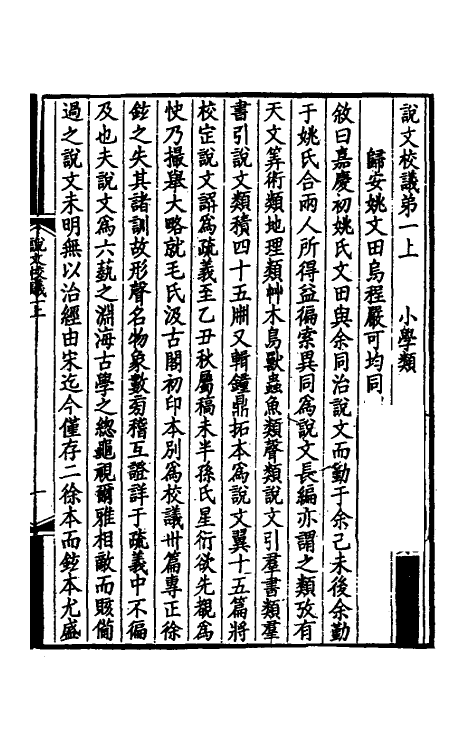 說文校議弟一上　　小學類
歸安姚文田烏程嚴可均同
敘曰嘉慶初姚氏文田與余同治說文而勤于余己未後余勤
于姚氏合兩人所得益徧索異同爲說文長編亦謂之類攷有
天文筭術類地理類艸木鳥獸蟲魚類聲類說文引羣書類羣
書引說文類積四十五冊又輯鐘鼎拓本爲說文翼十五篇將
校定說文譔爲疏義至乙丑秋屬稿未半孫氏星衍欲先覩爲
快乃撮舉大略就毛氏汲古閣初印本別爲校議卅篇專正徐
鉉之失其諸訓故形聲名物象數㫄稽互證詳于疏義中不徧
及也夫說文爲六藝之淵海古學之總龜視爾雅相敵而賅備
過之說文未明無以治經由宋迄今僅存二徐本而鉉本尤盛
說文校議上
一